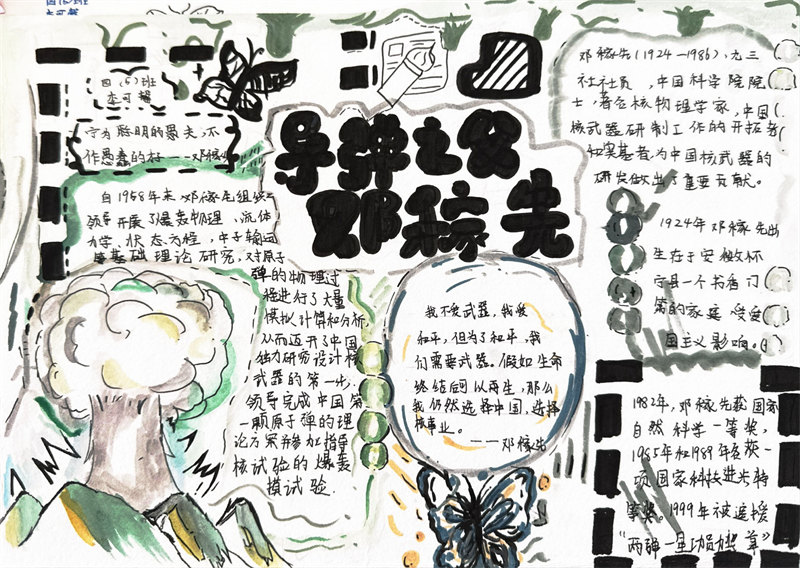 四(5)班
李可馨
导弹之父
邓稼先
宁为聪明的愚夫,不
作愚蠢的
自1958年来,邓稼先组织
领导开展了爆轰物理、流体
力学、状态方程、中子输运
等基础理论研究,对原子
弹的物理过
程进行了大量
模拟计算和分析,
从而迈开了中国
独力研究设计核
武器的第一步,
领导完成中国第
一颗原子弹的理
论方案并参加指导
核试验的爆轰
模试验.
我不爱武器,我爱
和平,但为了和平,我
们需要武器。假如生命
终结后可以再生,那么
我仍然选择中国,选择
核事业。
——邓稼先
邓稼先(1924—1986),九三
社社员,中国科学院院
士,著名核物理学家,中国
核武器研制工作的开拓者
和奠基者,为中国核武器的
研发做出了重要贡献。
1924年邓稼先出
生在于安徽怀
宁县一个书香门
第的家庭,受爱
国主义影响。
1982年,邓稼先获国家
自然科学一等奖,
1985年和1989年各获一
项国家科技进步特
等奖。1999年被追授
“两弹一星功勋奖章”